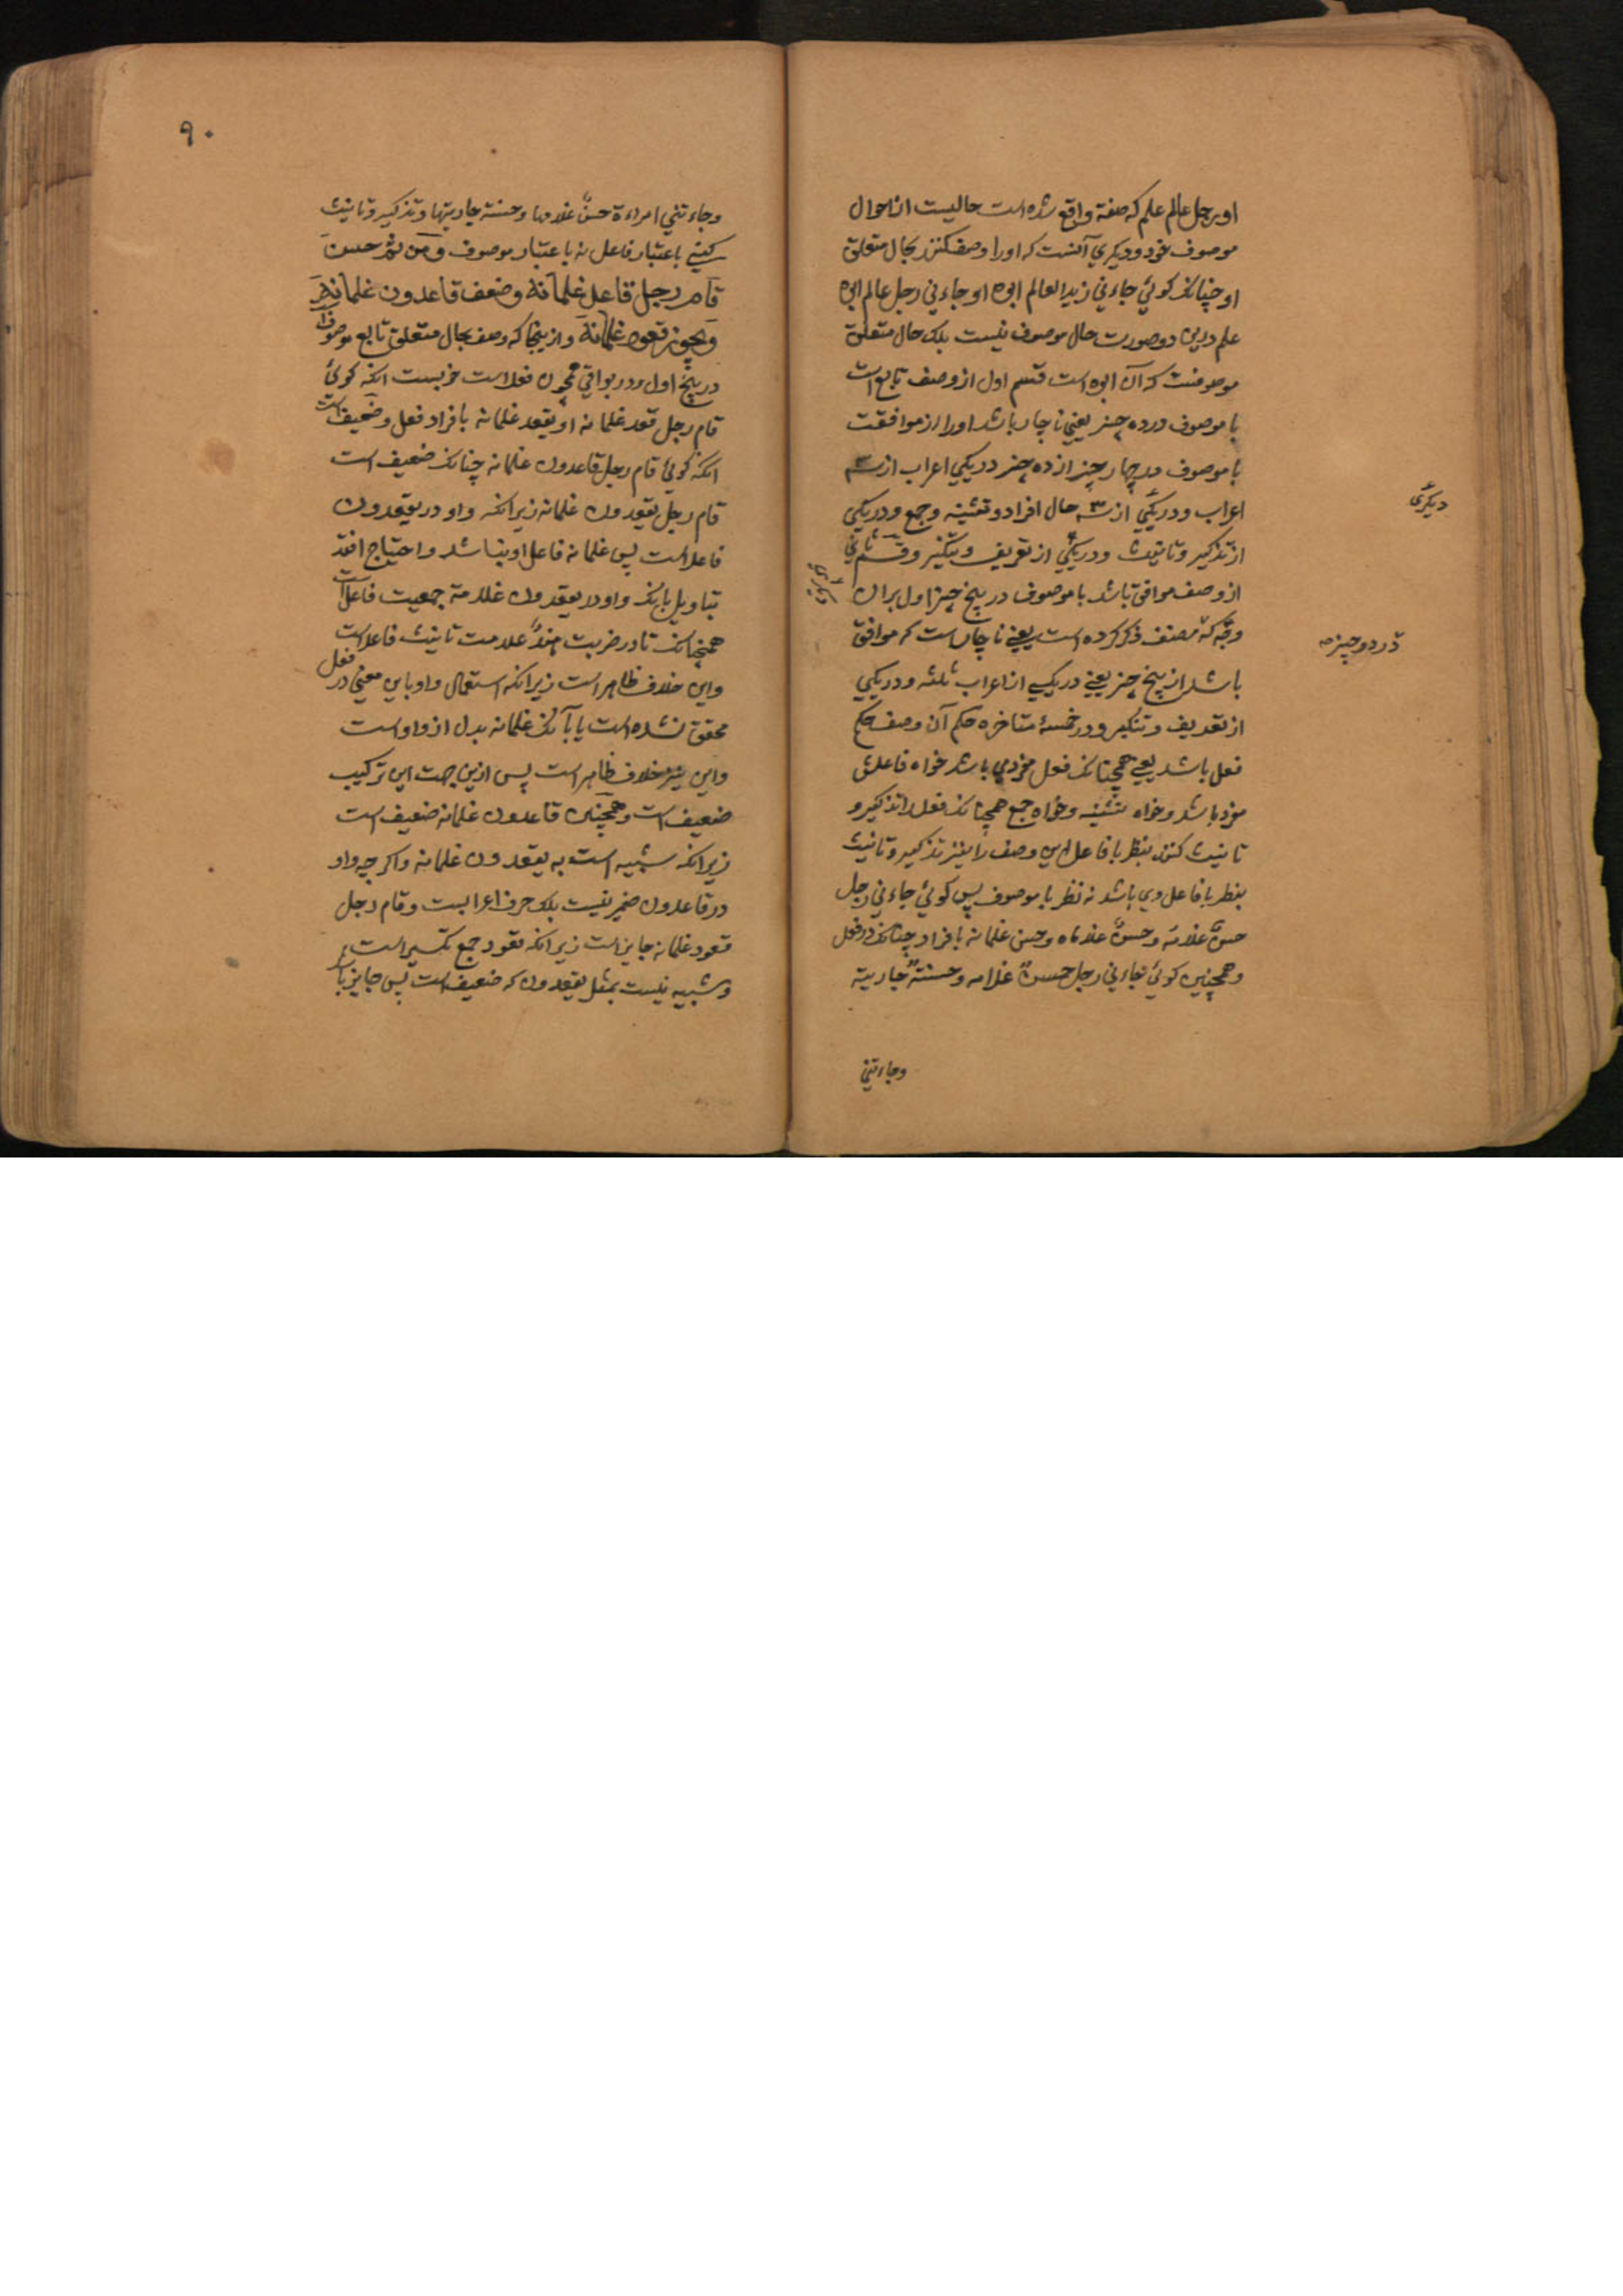 او رجل عالم علم که صفة واقع شده است حالیست از احوال
موصوف خود و دیکری آنست که او را وصف کنند بحال متعلق
او چنانکه کوئي جاءني زید العالم ابوه او جاءني رجل عالم ابوه
علم درین دو صورت حال موصوف نیست بلکه حال متعلق
موصوفست که آن ابوه است قسم اول از وصف تابع است
با موصوف در ده چیز یعني ناچار باشد او را از موافقت
با موصوف در چهار چیز از ده چیز در یکي اعراب از سه
اعراب و در یکي از سه حال افراد و تثنیه و جمع و در یکي
دیکری
از تذکیر و تانیث و در یکي از تعریف و تنکیر و قسم ثاني
از وصف موافق باشد با موصوف در پنج چیز اول بران
وجه که مصنف ذکر کرده است یعنے ناچار است که موافق
در دو چیز
باشد از پنج چیز یعنے در یکی از اعراب ثلثه و در یکي
از تعریف و تنکیر و در خمسهٔ متاخره حکم آن وصف حکم
فعل باشد یعنے همچنانکه فعل مفرد باشد خواه فاعلش
مفرد باشد و خواه تثنیه و خواه جمع همچنانکه فعل را تذکیر و
تانیث کنند بنظر با فاعل این وصف را نیز تذکیر و تانیث
بنظر با فاعل وي باشد نه نظر با موصوف پس کوئي جاءني رجل
حسن غلامه و حسن غلاماه و حسن غلمانه بافراد چنانکه در فعل
و همچنین کوئي جاءني رجل حسن غلامه و حسنة جاریته
وجاءتني
۹۰
وجاءتني امراءة حسن غلامها و حسنة جاریتها و تذکیر و تانیث
کنے باعتبار فاعل نه باعتبار موصوف ومن ثم حسن
قام رجل قاعد غلمانه وضعف قاعدون غلمانه
ویجوز قعود غلمانه و ازینجا که وصف بحال متعلق تابع موصوف
در پنج اول و در بواقي همچون فعل است خوبست انکه کوئي
قام رجل قعد غلمانه او یقعد غلمانه بافراد فعل و ضعیف است
انکه کوئي قام رجل قاعدون غلمانه چنانکه ضعیف است
قام رجل یقعدون غلمانه زیرانکه واو در یقعدون
فاعل است پس غلمانه فاعل او نباشد و احتیاج افتد
بتاویل بانکه واو در یقعدون علامة جمعیت فاعل است
همچنانکه تا در ضربت هند علامت تانیث فاعل است
واین خلاف ظاهر است زیرانکه استعمال واو باین معني در فعل
محقق نشده است یا بآنکه غلمانه بدل از واو است
واین نیز خلاف ظاهر است پس ازین جهت این ترکیب
ضعیف است و همچنین قاعدون غلمانه ضعیف است
زیرانکه شبیه است به یقعدون غلمانه و اکر چه واو
در قاعدون ضمیر نیست بلکه حرف اعرابست و قام رجل
قعود غلمانه جایز است زیرانکه قعود جمع تکسیر است
و شبیه نیست بمثل یقعدون که ضعیف است پس جایز باشد